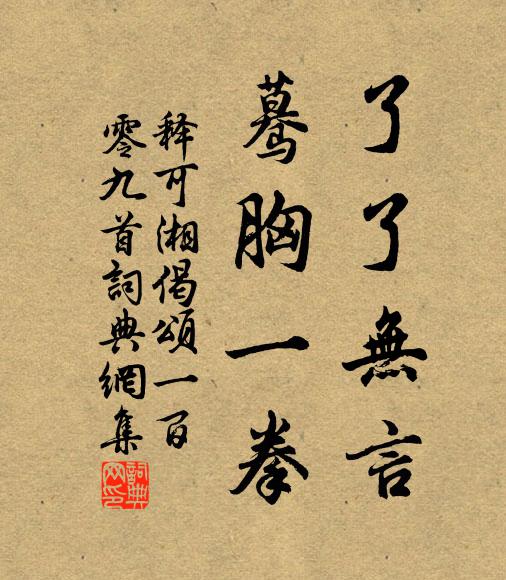 了了無言
驀胸一拳
释可湘偈頌一百
零九首詞典網集
詞典网印